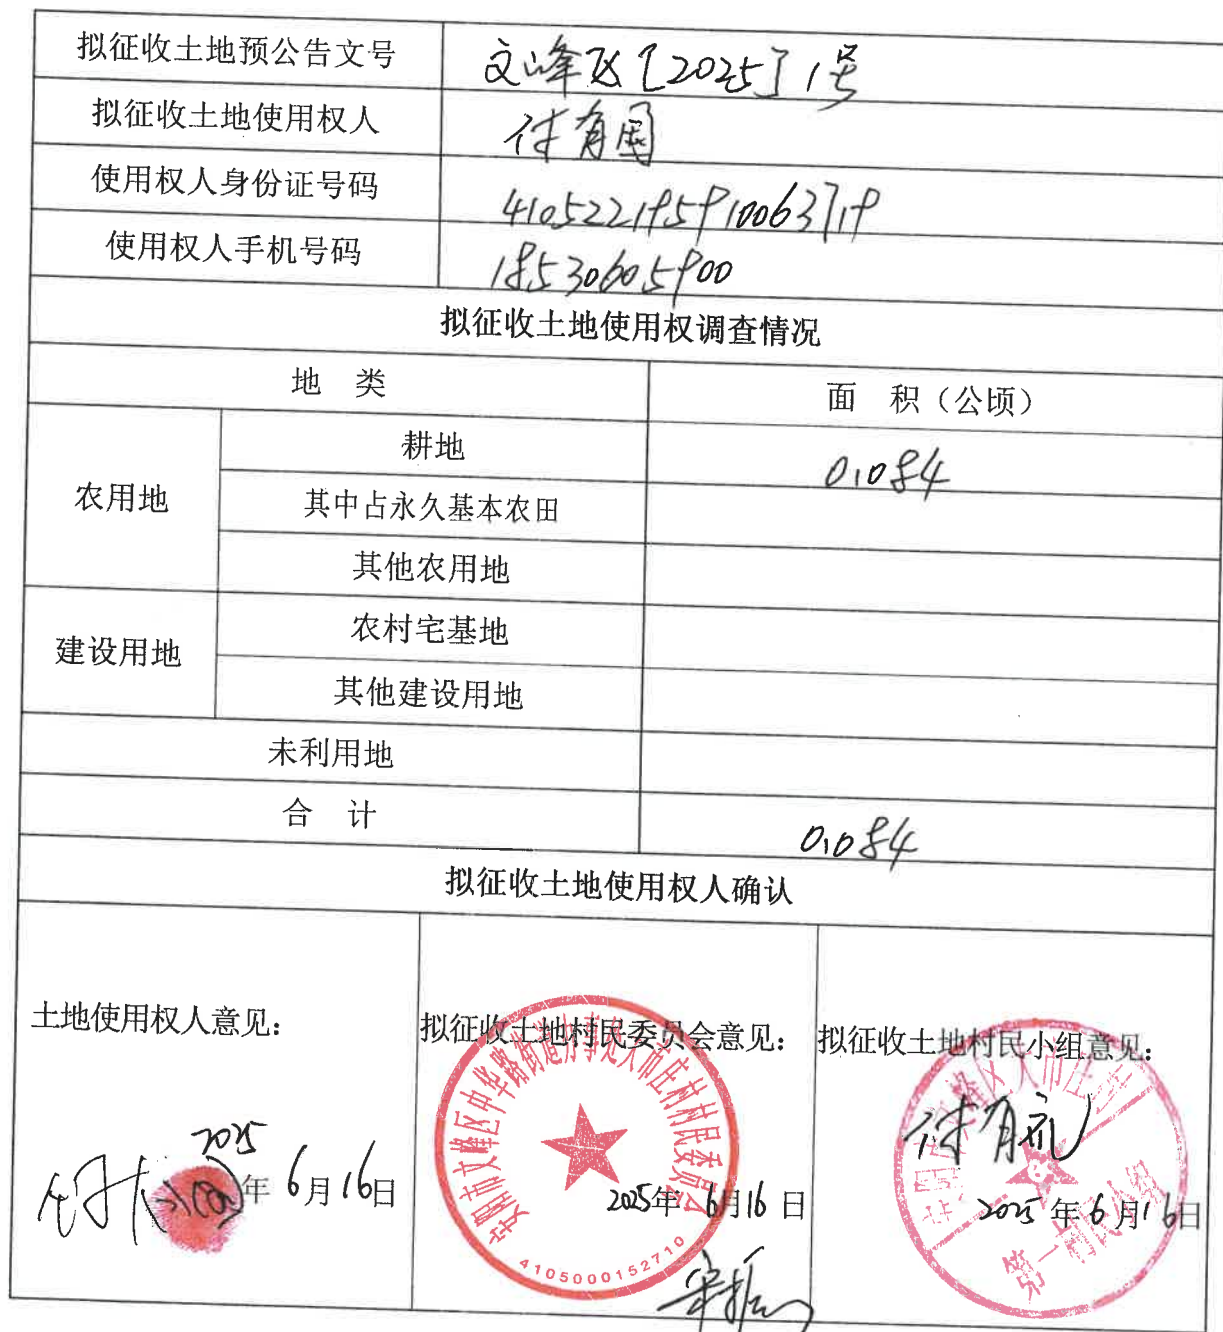 拟征收土地预公告文号 文峰区[2025]1号
拟征收土地使用权人 付有国
使用权人身份证号码 410522195910063719
使用权人手机号码 18530605900
拟征收土地使用权调查情况
地 类 面 积（公顷）
农用地 耕地 0.084
其中占永久基本农田
其他农用地
建设用地 农村宅基地
其他建设用地
未利用地
合 计 0.084
拟征收土地使用权人确认
土地使用权人意见：
2025年6月16日
拟征收土地村民委员会意见：
安阳市文峰区中华路街道办事处大市庄村村民委员会
2025年6月16日
4105000152710
拟征收土地村民小组意见：
安阳市文峰区大市庄村
2025年6月16日
第一村民小组